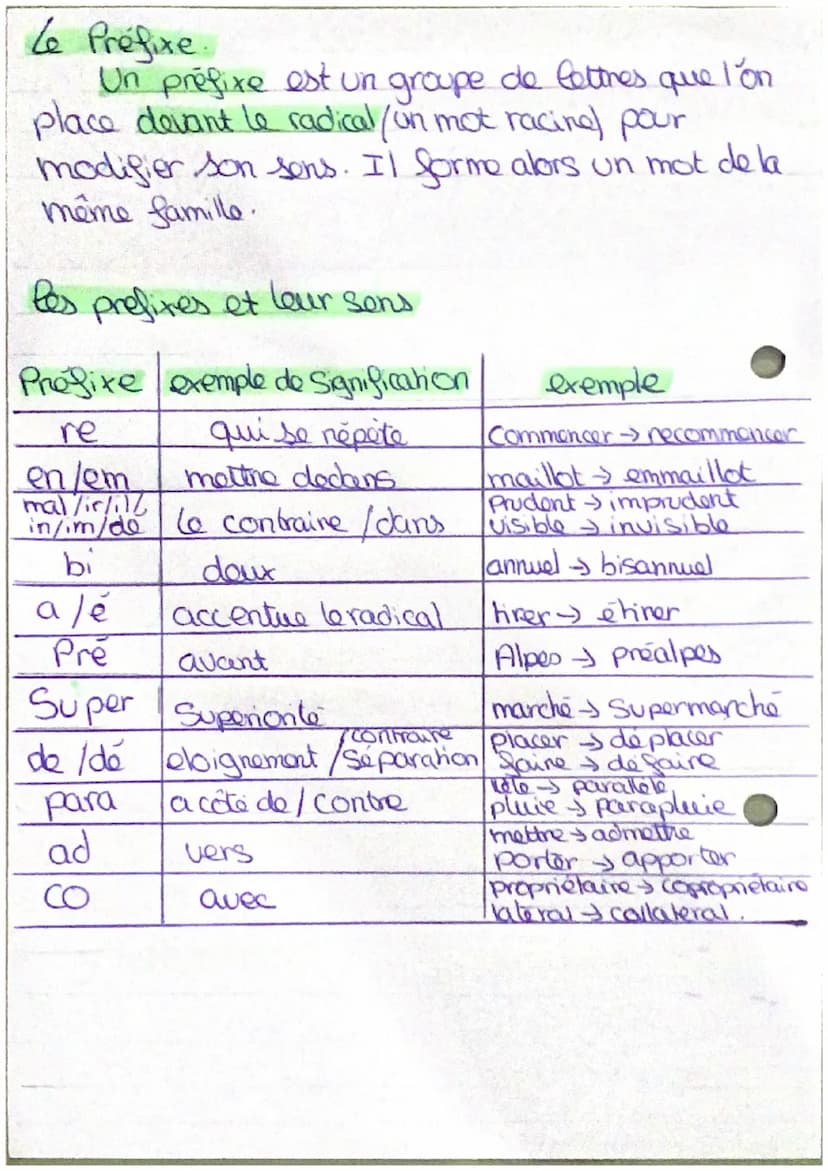 Le Préfixe.
Un préfixe est un groupe de lettres que l'on
place devant le radical (un mot racine) pour
modifier son sens. Il forme alors un mot de la
même famille.
Les prefixes et leur sens
Préfixe exemple de signification exemple
re qui se répète commencer → recommencer
en/em mettre dedans maillot → emmaillot
mal/ir/il/ prudent → imprudent
in/im/de le contraire / dans visible → invisible
bi deux annuel → bisannuel
a/é accentue le radical tirer → étirer
Pré avant Alpes → préalpes
Super Superiorité marché → Supermarché
/contraire placer → déplacer
de/dé eloignement /séparation faire → défaire
→ parallèle
para a côté de / contre pluie → parapluie
mettre → admettre
ad vers porter → apporter
propriétaire → copropriétaire
co avec lateral → collateral.